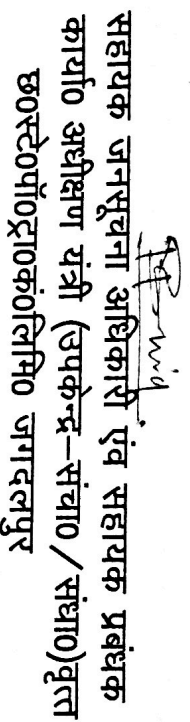 सहायक जनसूचना अधिकारी एंव सहायक प्रबंधक
कार्या० अधीक्षण यंत्री (उपकेन्द्र–संचा० / संधा०)वृत्त
छ०स्टे०पॉ०ट्रा०कं०लिमि० जगदलपुर